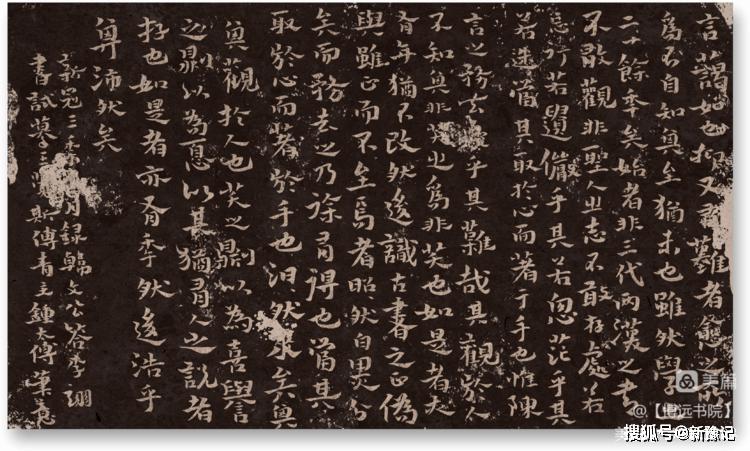 言藹如也抑又有難者愈之所
為不自知其至猶未也雖然學之
二十餘年矣始者非三代兩漢之書
不敢觀非聖人之志不敢存處若
忘行若遺儼乎其若思茫乎其
若迷當其取於心而著于手也惟陳
言之務去乎其難哉其觀於人
不知其非笑之為非笑也如是者亦
有年猶不改然後識古書之正偽
與雖正而不至焉者昭然白黑分
矣而務去之乃徐有得也當其
取於心而著於手也汩然來矣其
其觀於人也笑之則以為喜譽
之則以為憂以其猶有人之說者
存也如是者亦有年然後浩乎
其沛然矣
新冠三年月錄韓文公答李翊
書試摹傅青主鍾太傅筆意
美篇
远书院】
搜狐号@新豫记